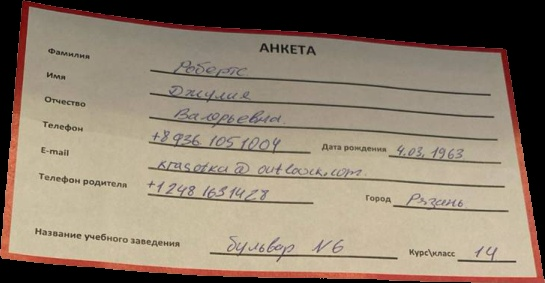 АНКЕТА
Фамилия Робертс
Имя Джулия
Отчество Валерьевна.
Телефон +8 936 1051004 Дата рождения 4.03, 1963
E-mail krasotka@outlook.com.
Телефон родителя +1 248 1631428 Город Рязань
Название учебного заведения бульвар №6 Курс\класс 14